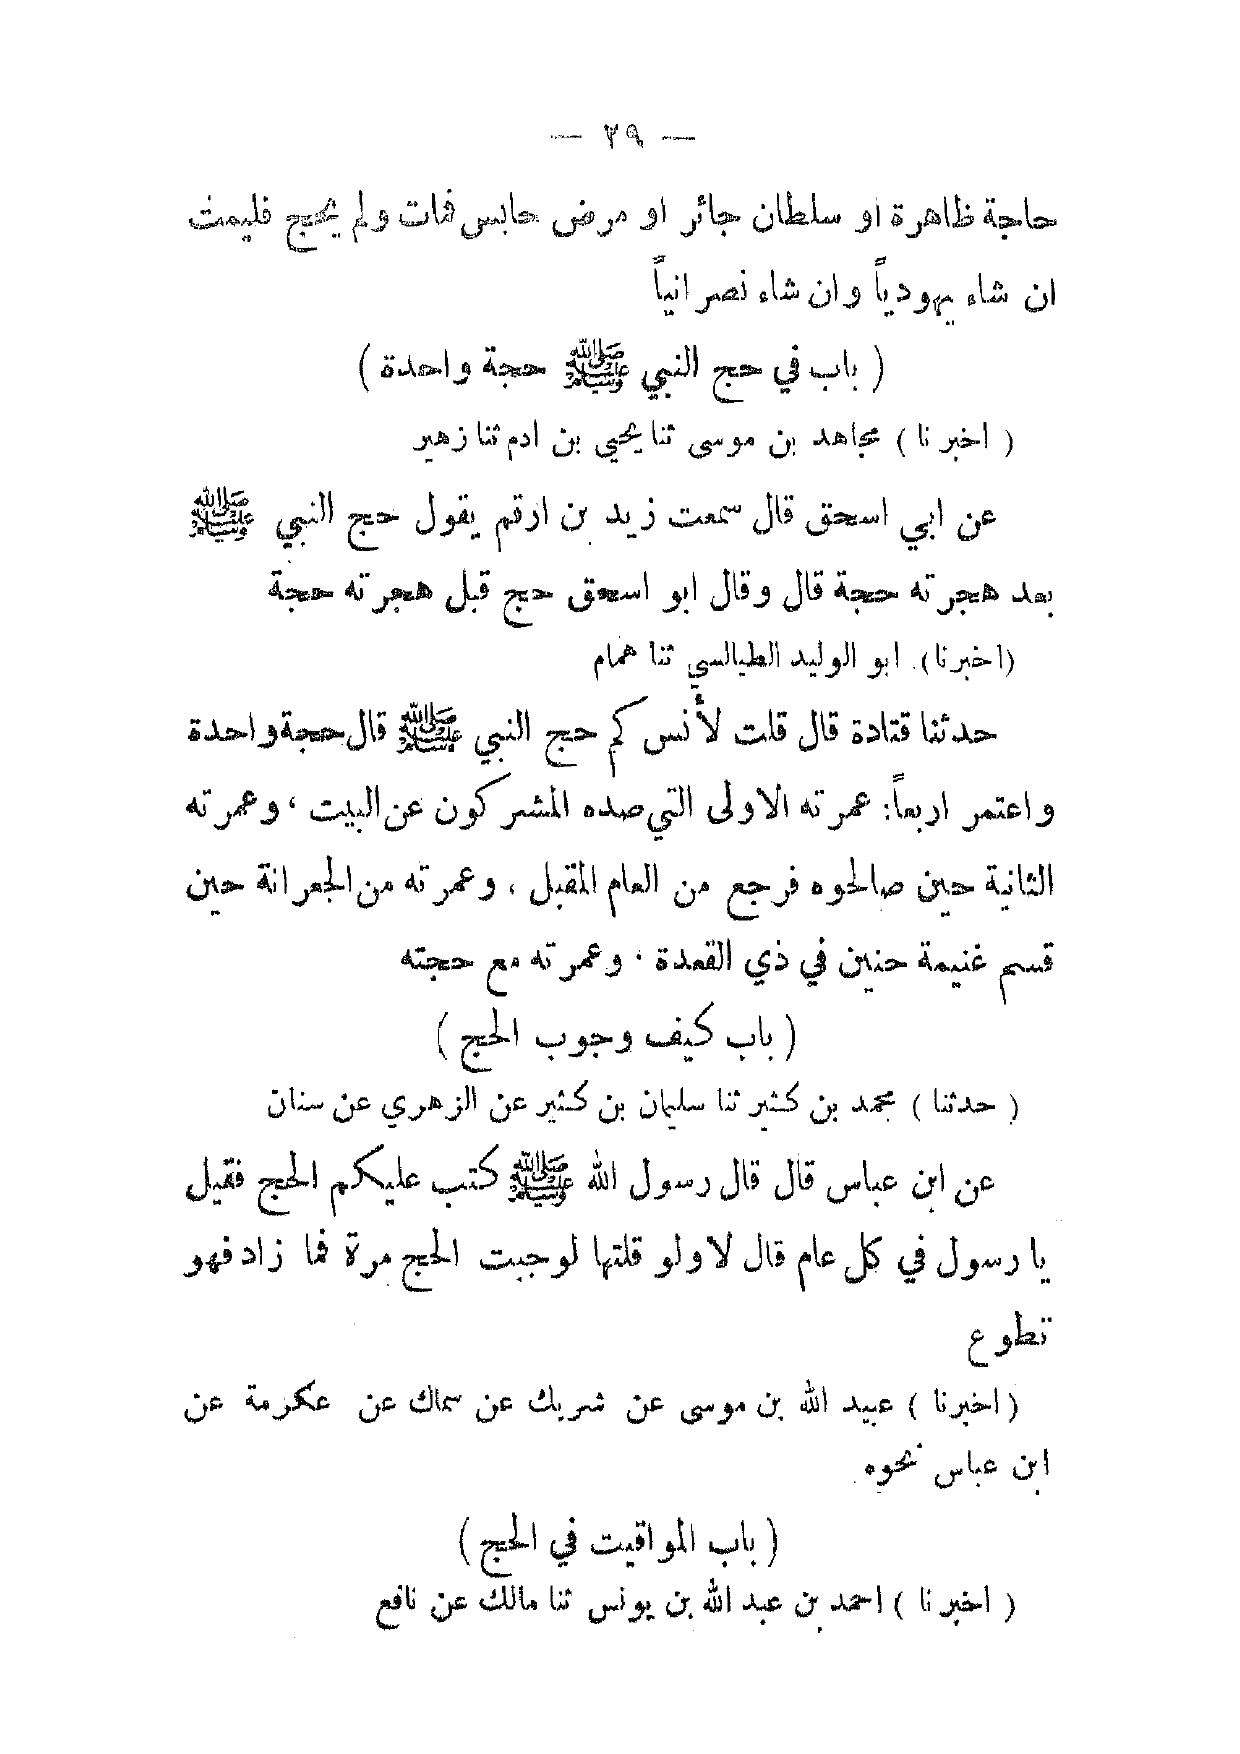 — ٢٩ —
حاجة ظاهرة او سلطان جائر او مرض حابس فمات ولم يحج فليمت
ان شاء يهودياً وان شاء نصرانياً
( باب في حج النبي ﷺ حجة واحدة )
( اخبرنا ) مجاهد بن موسى ثنا يحيى بن ادم ثنا زهير
عن ابي اسحق قال سمعت زيد بن ارقم يقول حج النبي ﷺ
بعد هجرته حجة قال وقال ابو اسحق حج قبل هجرته حجة
(اخبرنا) ابو الوليد الطيالسي ثنا همام
حدثنا قتادة قال قلت لأنس كم حج النبي ﷺ قال حجة واحدة
واعتمر اربعاً: عمرته الاولى التي صده المشركون عن البيت ، وعمرته
الثانية حين صالحوه فرجع من العام المقبل ، وعمرته من الجعرانة حين
قسم غنيمة حنين في ذي القعدة ، وعمرته مع حجته
( باب كيف وجوب الحج )
( حدثنا ) محمد بن كثير ثنا سليمان بن كثير عن الزهري عن سنان
عن ابن عباس قال قال رسول الله ﷺ كتب عليكم الحج فقيل
يا رسول في كل عام قال لا ولو قلتها لوجبت الحج مرة فما زاد فهو
تطوع
( اخبرنا ) عبيد الله بن موسى عن شريك عن سماك عن عكرمة عن
ابن عباس نحوه
( باب المواقيت في الحج )
( اخبرنا ) احمد بن عبد الله بن يونس ثنا مالك عن نافع